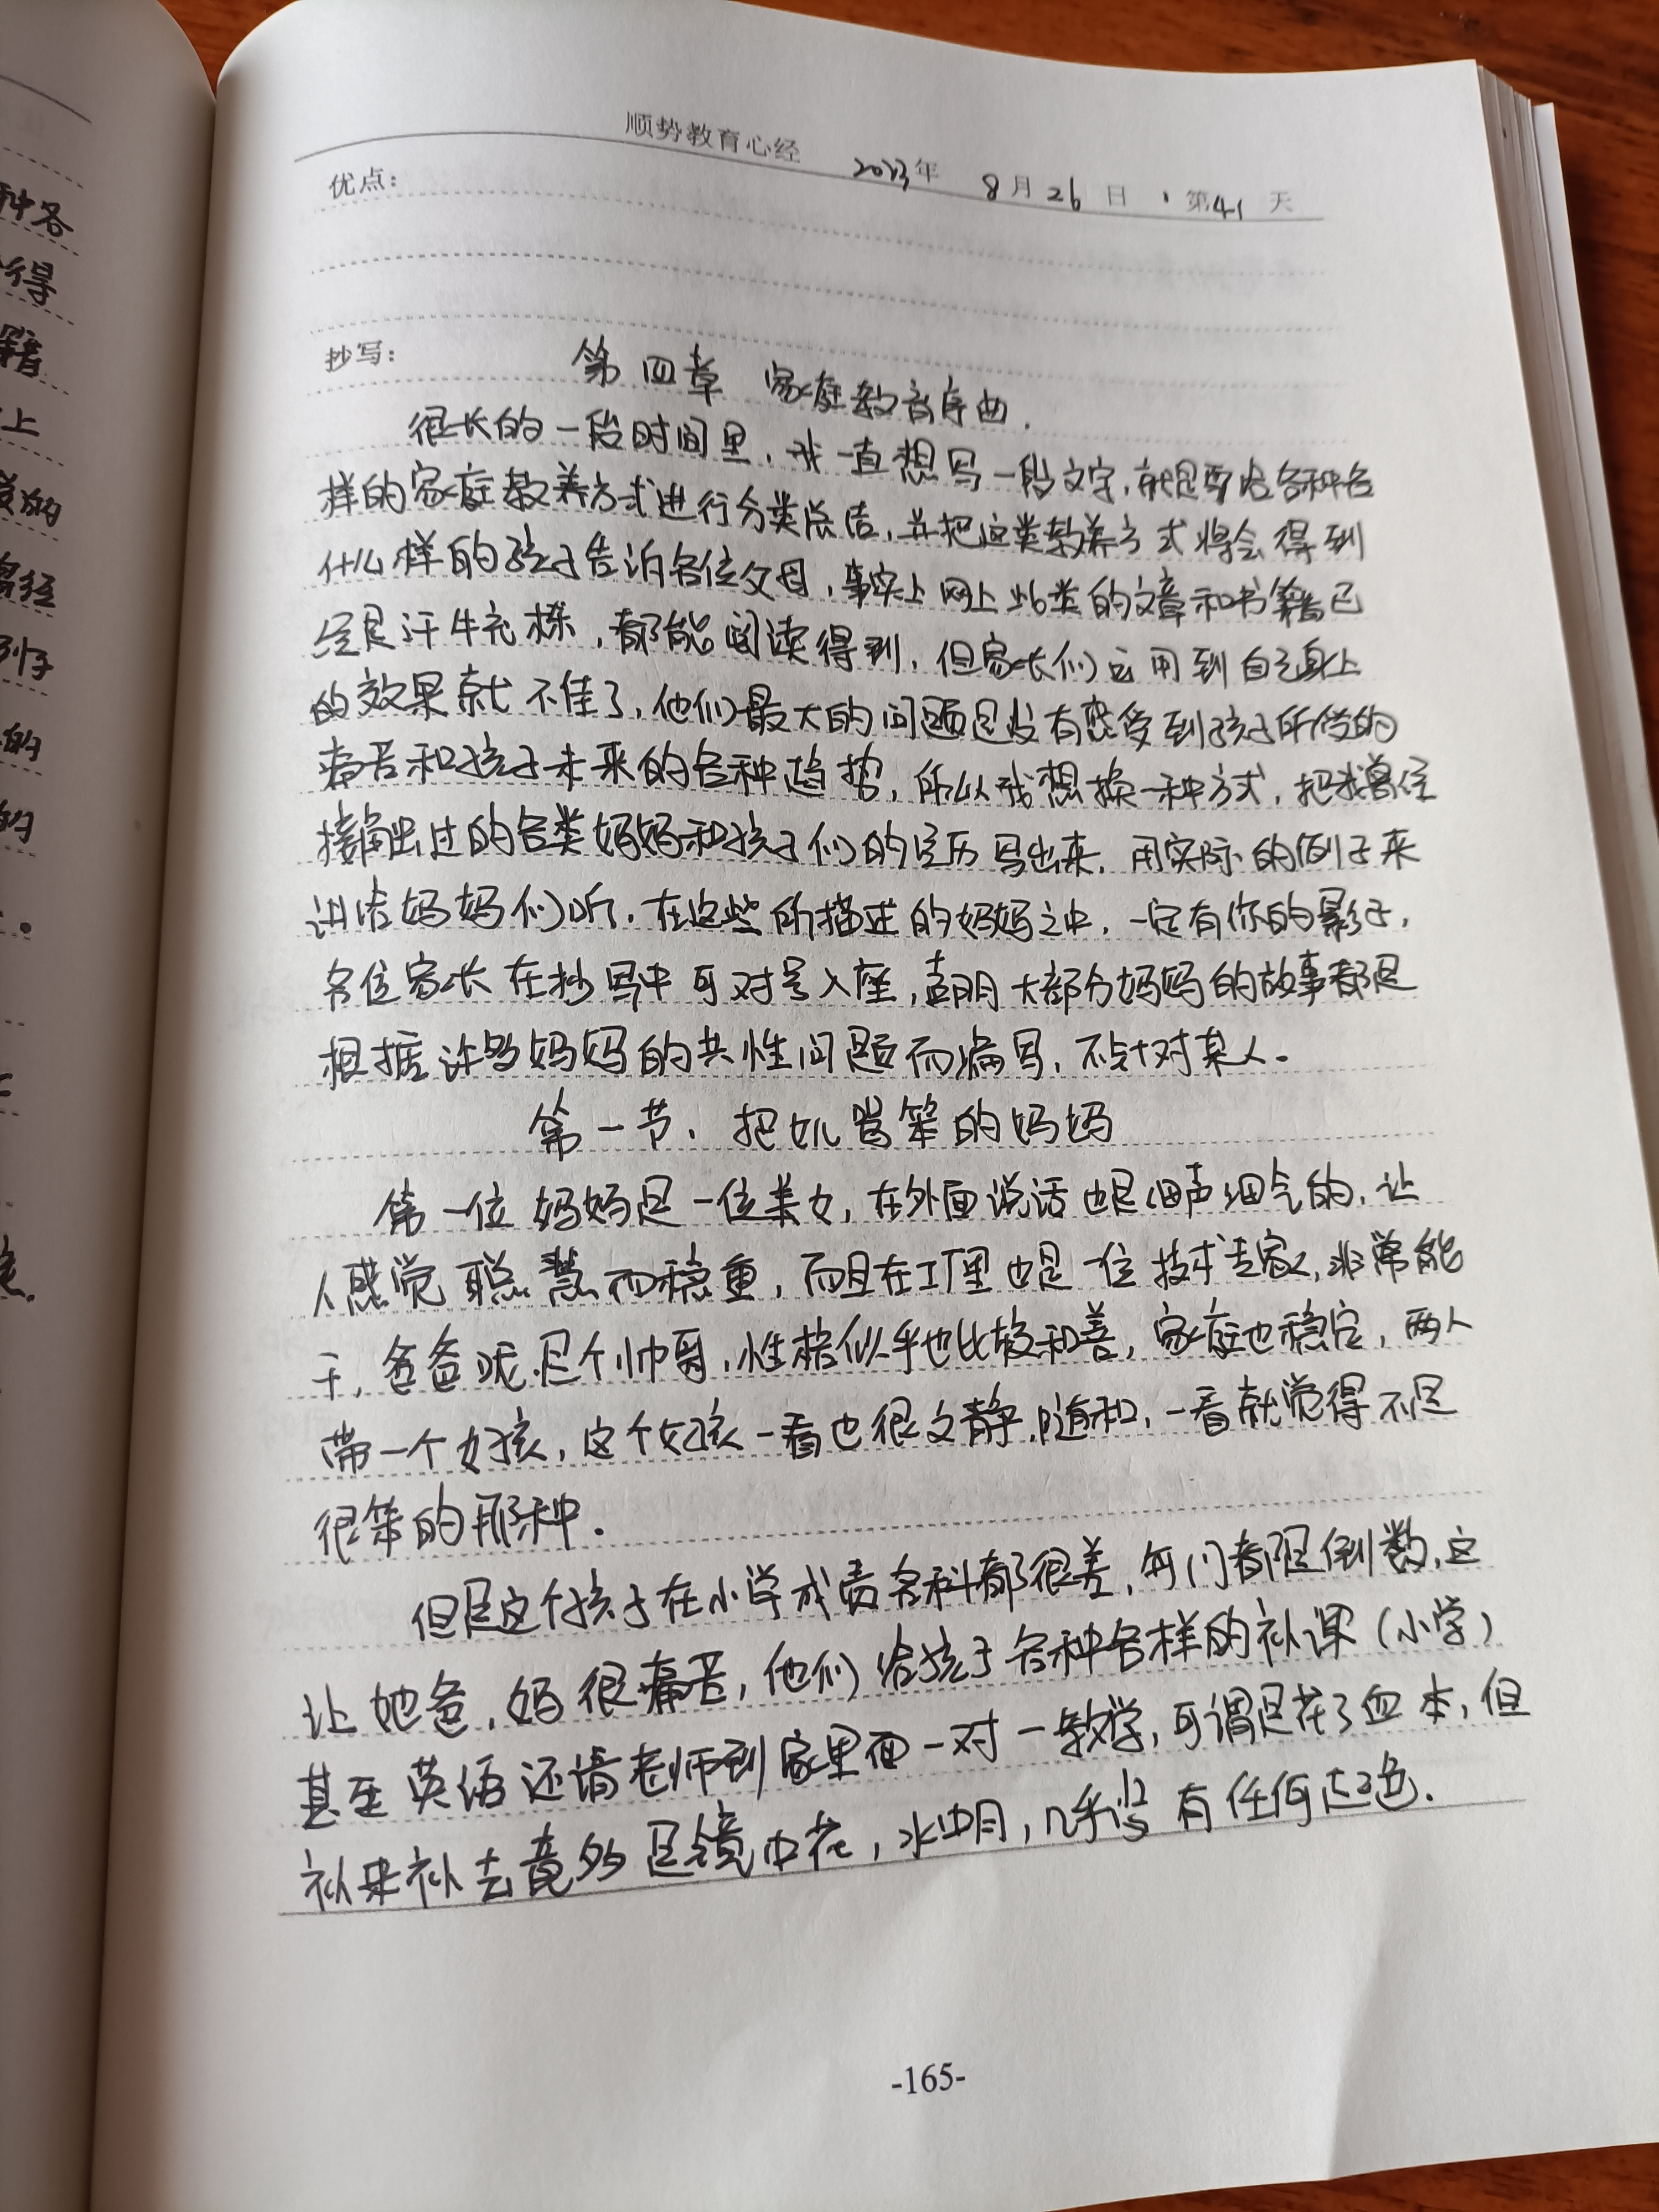 种各
得
籍
上
的
曾经
例子
的
的
。
顺势教育心经
2023年 8月26日,第41天
优点:
抄写: 第四章 家庭教育序曲.
很长的一段时间里,我一直想写一段文字,就是要给各种各
样的家庭教养方式进行分类总结,并把这类教养方式将会得到
什么样的孩子告诉各位父母,事实上网上此类的文章和书籍已
经是汗牛充栋,都能阅读得到,但家长们运用到自己身上
的效果就不佳了,他们最大的问题是没有感受到孩子所受的
痛苦和孩子未来的各种趋势,所以我想换一种方式,把我曾经
接触过的各类妈妈和孩子们的经历写出来,用实际的例子来
讲给妈妈们听.在这些所描述的妈妈之中,一定有你的影子,
各位家长在抄写中可对号入座,声明大部分妈妈的故事都是
根据许多妈妈的共性问题而编写,不针对某人.
第一节、把女儿骂笨的妈妈
第一位妈妈是一位美女,在外面说话也是细声细气的,让
人感觉聪慧而稳重,而且在工厂里也是一位技术专家,非常能
干,爸爸呢是个帅哥,性格似乎也比较和善,家庭也稳定,两人
带一个女孩,这个女孩一看也很文静、随和,一看就觉得不是
很笨的那种.
但是这个孩子在小学成责各科都很差,每门都是倒数,这
让她爸、妈很痛苦,他们给孩子各种各样的补课(小学)
甚至英语还请老师到家里面一对一教学,可谓是花了血本,但
补来补去竟然是镜中花,水中月,几乎没有任何起色.
-165-